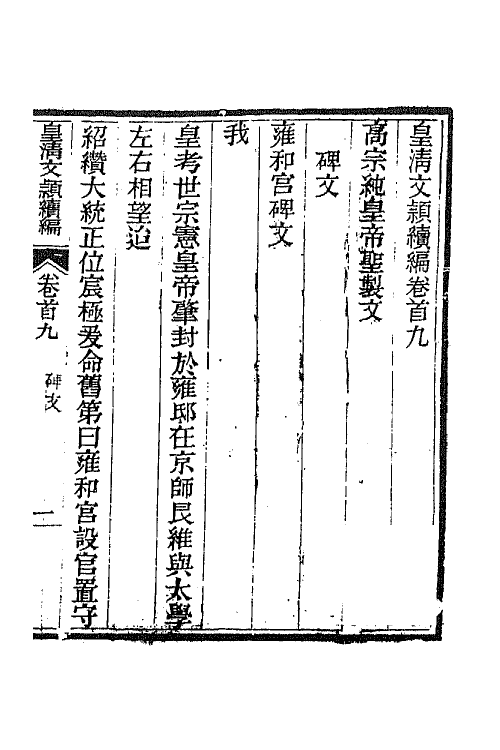 皇清文頴續編卷首九
高宗純皇帝聖製文
碑文
雍和宫碑文
我
皇考世宗憲皇帝肇封於雍邸在京師艮維與太學
左右相望迨
紹纘大統正位宸極爰命舊第曰雍和宫設官置守
皇清文頴續編
卷首九
碑文
一